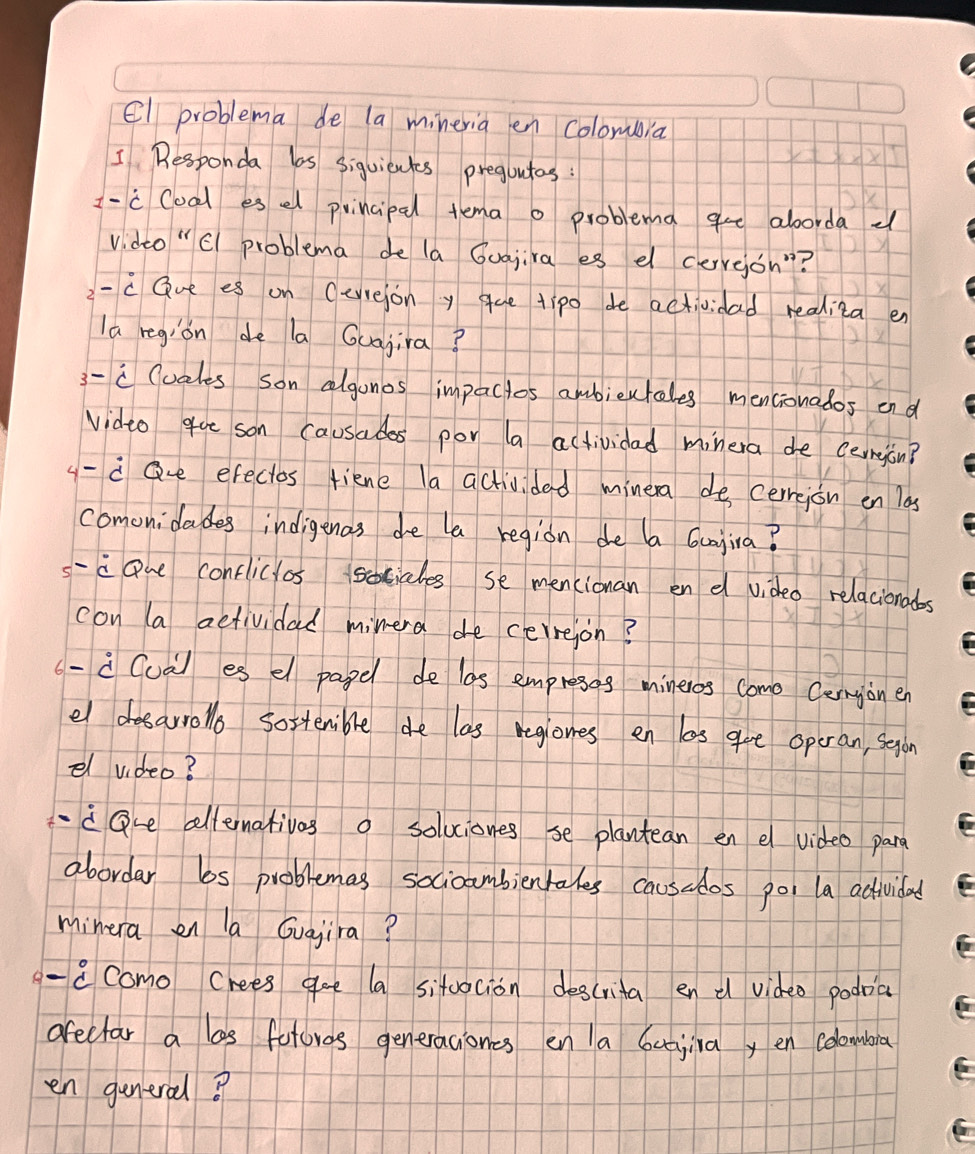 El problema de la mineria en Colombia
I Responda las siguientes preguntas:
1-¿ Cual es el principal tema o problema que aborda el
video "El problema de la Guajira es el cerrejón"?
2-¿ Que es un Cerrejón y que tipo de actividad realiza en
la región de la Guajira?
3-¿ Cuales son algunos impactos ambientales mencionados en el
Video que son causados por la actividad minera de cerrejón?
4-¿ Que efectos tiene la actividad minera de cerrejón en las
comunidades indigenas de la región de la Guajira?
5-¿ Que conflictos sociales se mencionan en el video relacionados
con la actividad minera de cerrejón?
6-¿ Cuál es el papel de las empresas mineras como Cerrejón en
el desarrollo sostenible de las regiones en las que operan, según
el video?
7-¿ Que alternativas o soluciones se plantean en el video para
abordar los problemas socioambientales causados por la actividad
minera en la Guajira?
8-¿ Como Crees que la situación descrita en el video podría
afectar a las futuras generaciones en la Guajira y en colombia
en general?